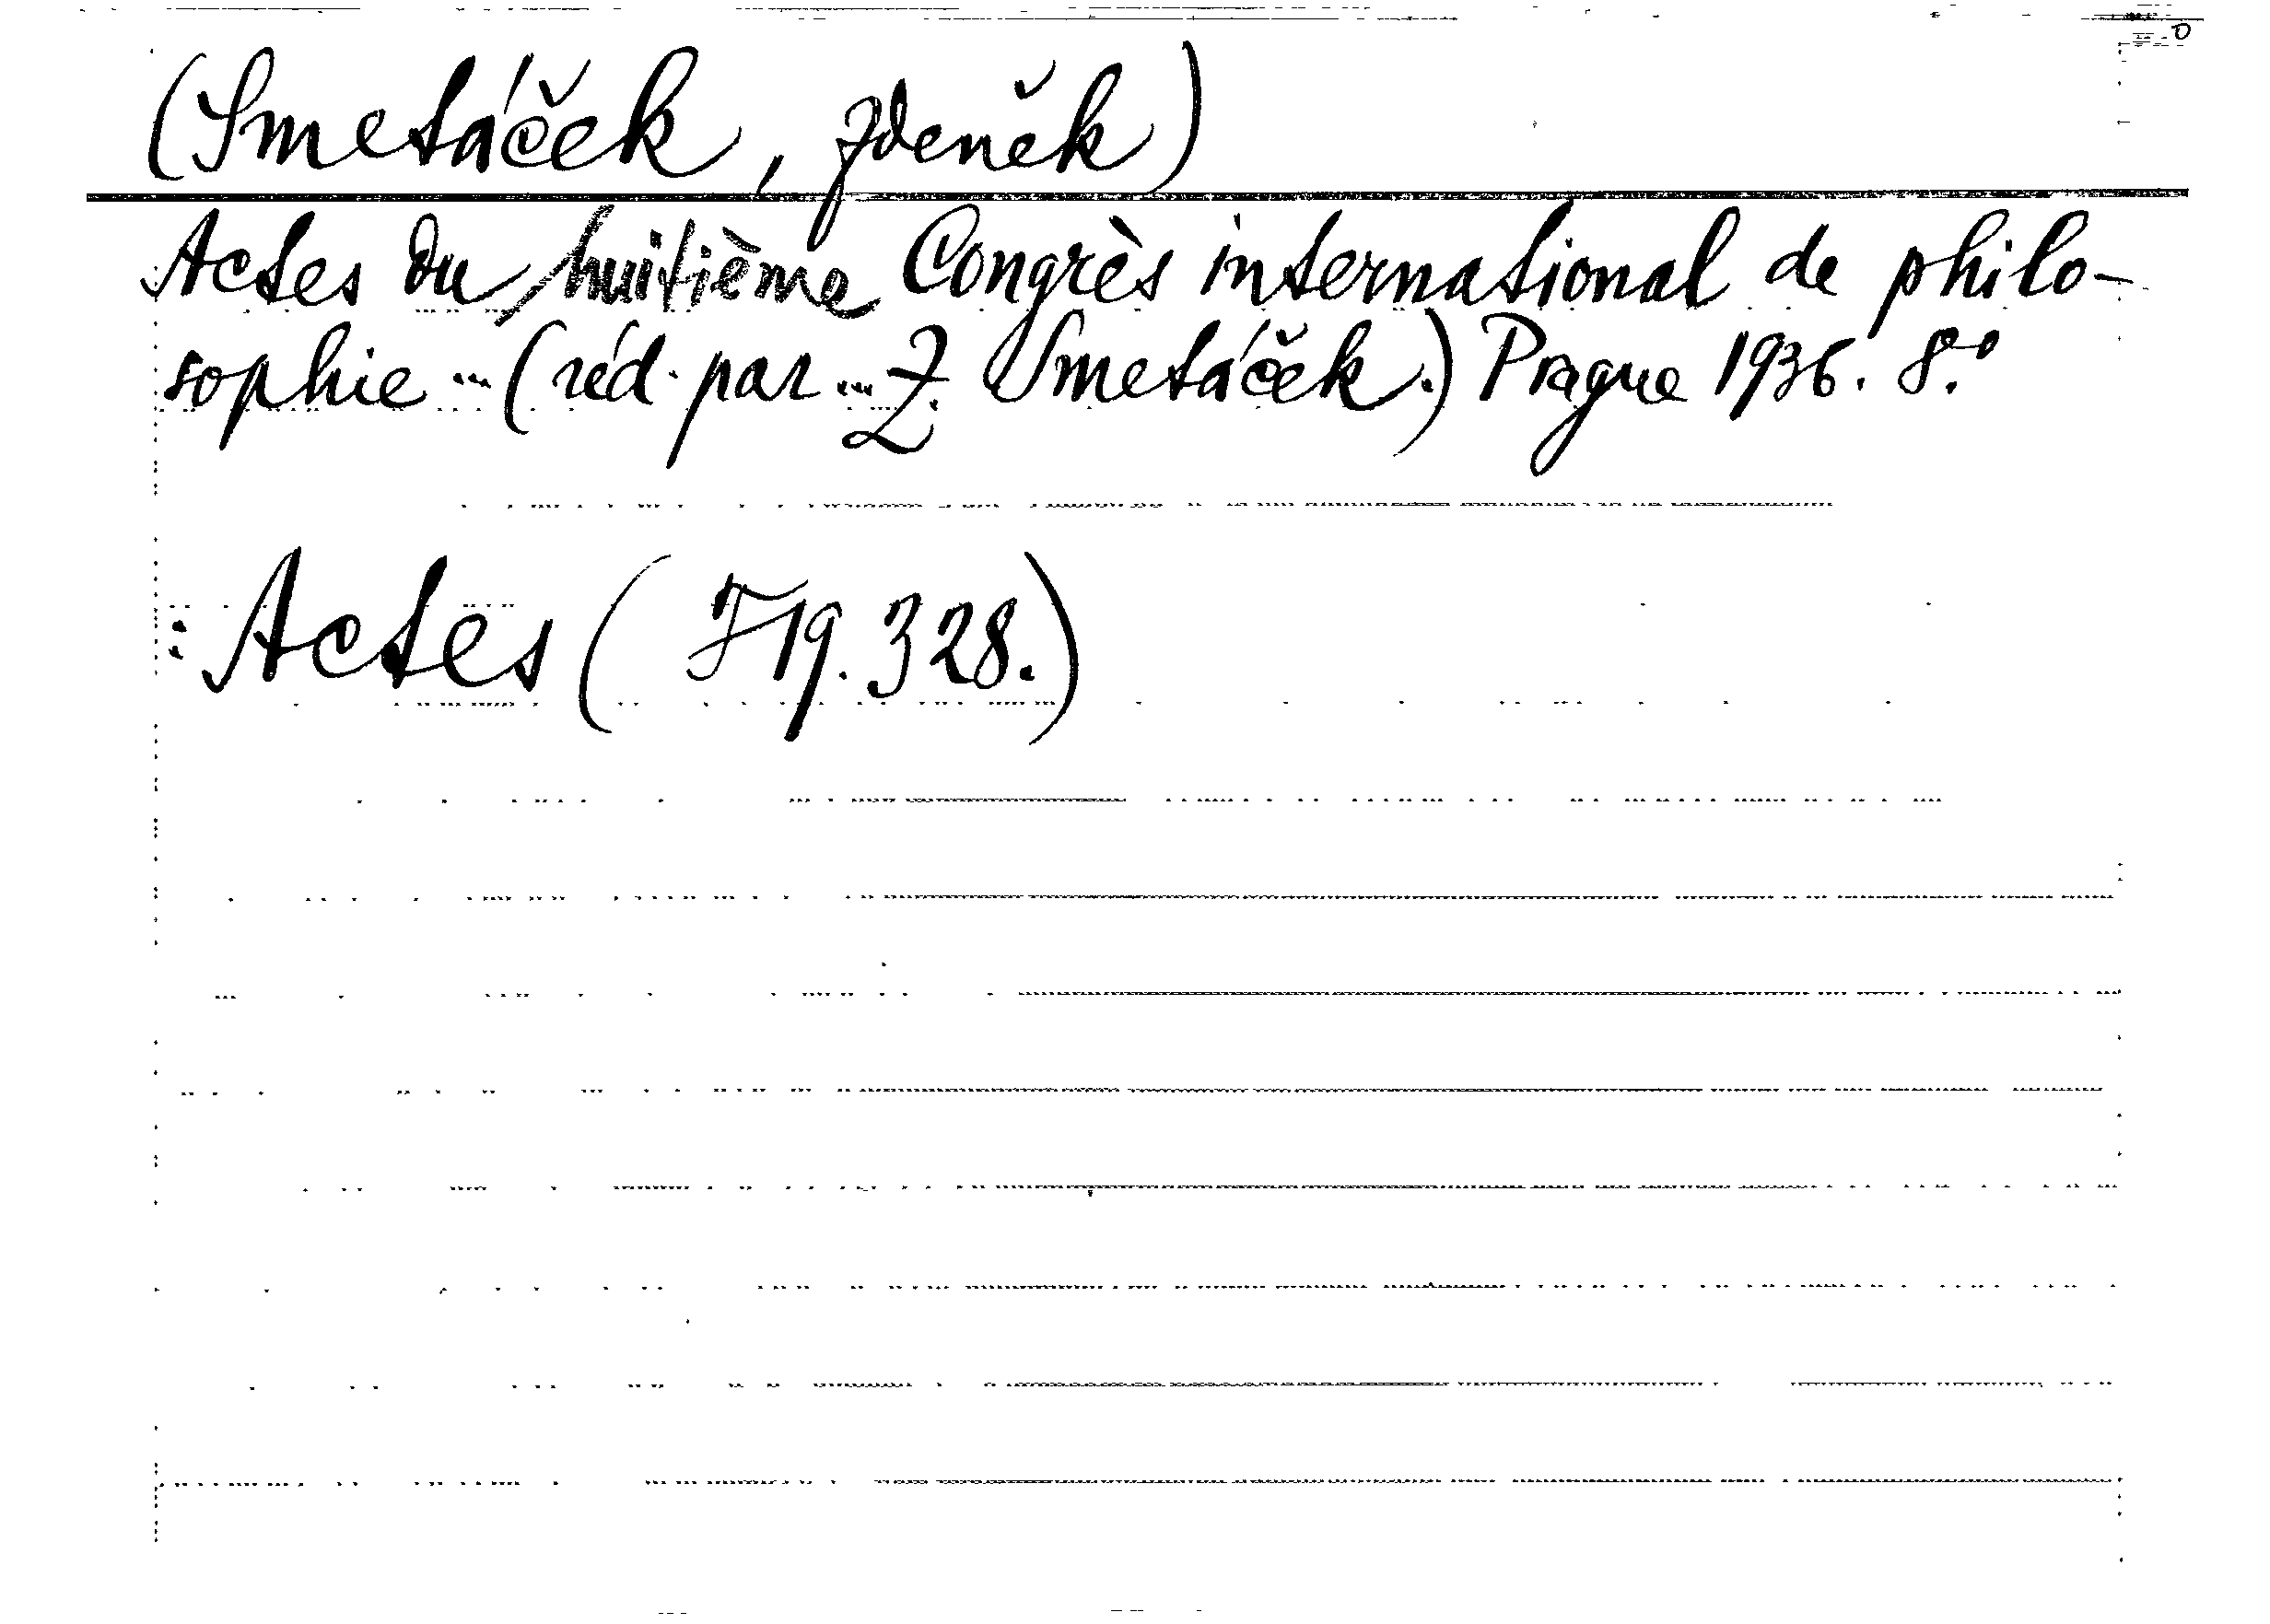 (Smetáček, Zdeněk)
Actes du huitième Congrès international de philo-
sophie ... (réd. par ... Z. Smetáček.) Prague 1936. 8.°
: Actes ( F19.328.)